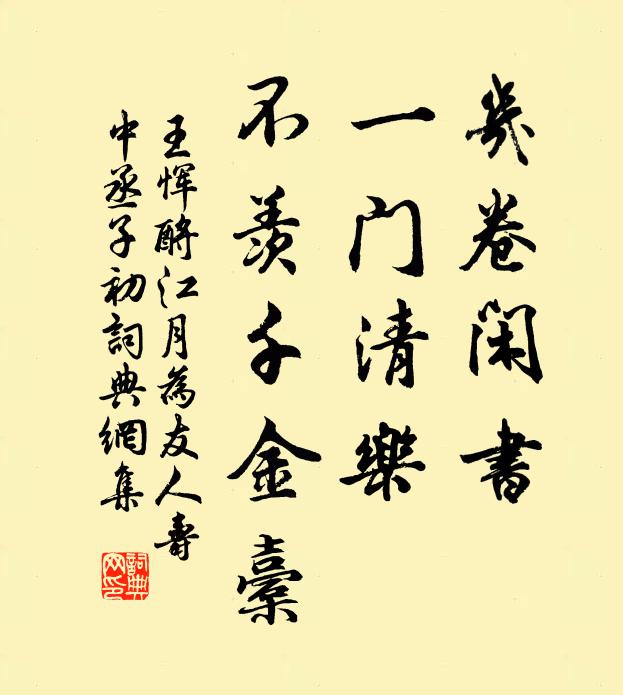 幾卷閑書
一門清樂
不羨千金橐
王惲酹江月為友人壽
中丞子初詞典網集
詞典網印